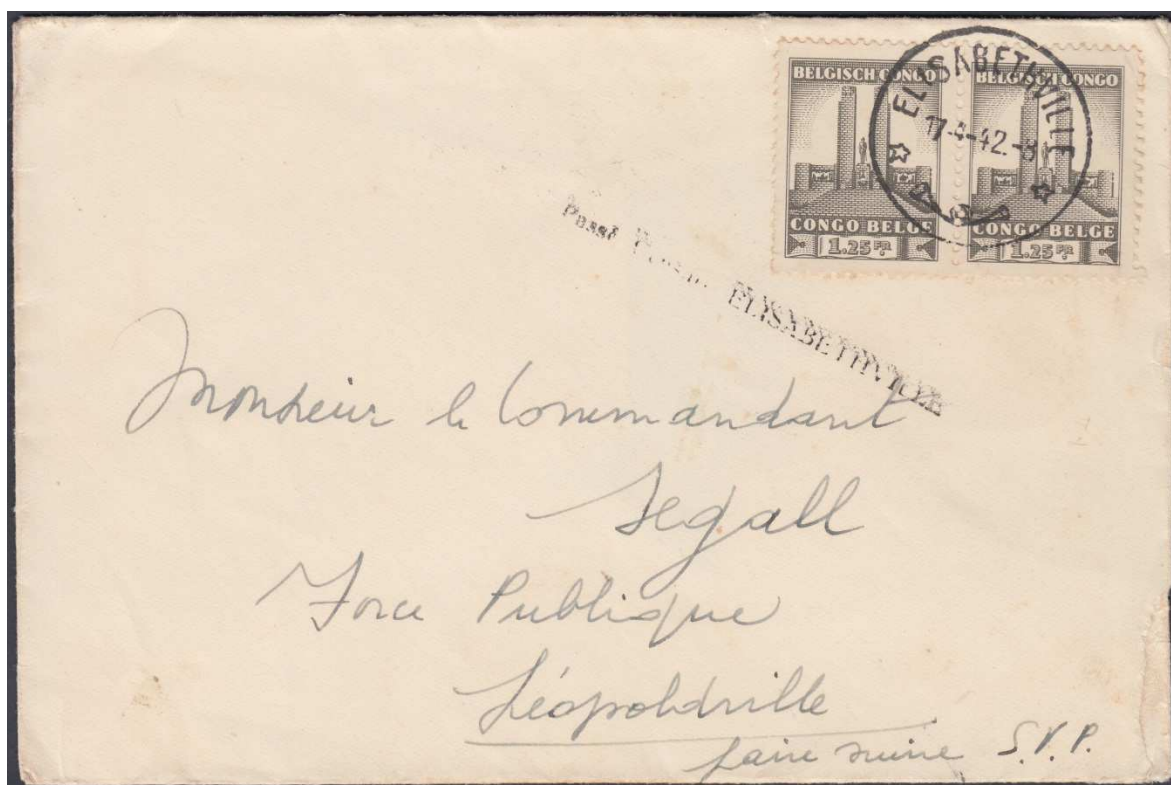 BELGISCH CONGO
CONGO BELGE
1.25 FR
BELGISCH CONGO
CONGO BELGE
1.25 FR
ELISABETHVILLE
17-4-42.-8
Passé
ELISABETHVILLE
Monsieur le Commandant
Segall
Force Publique
Léopoldville
faire suivre S.V.P.